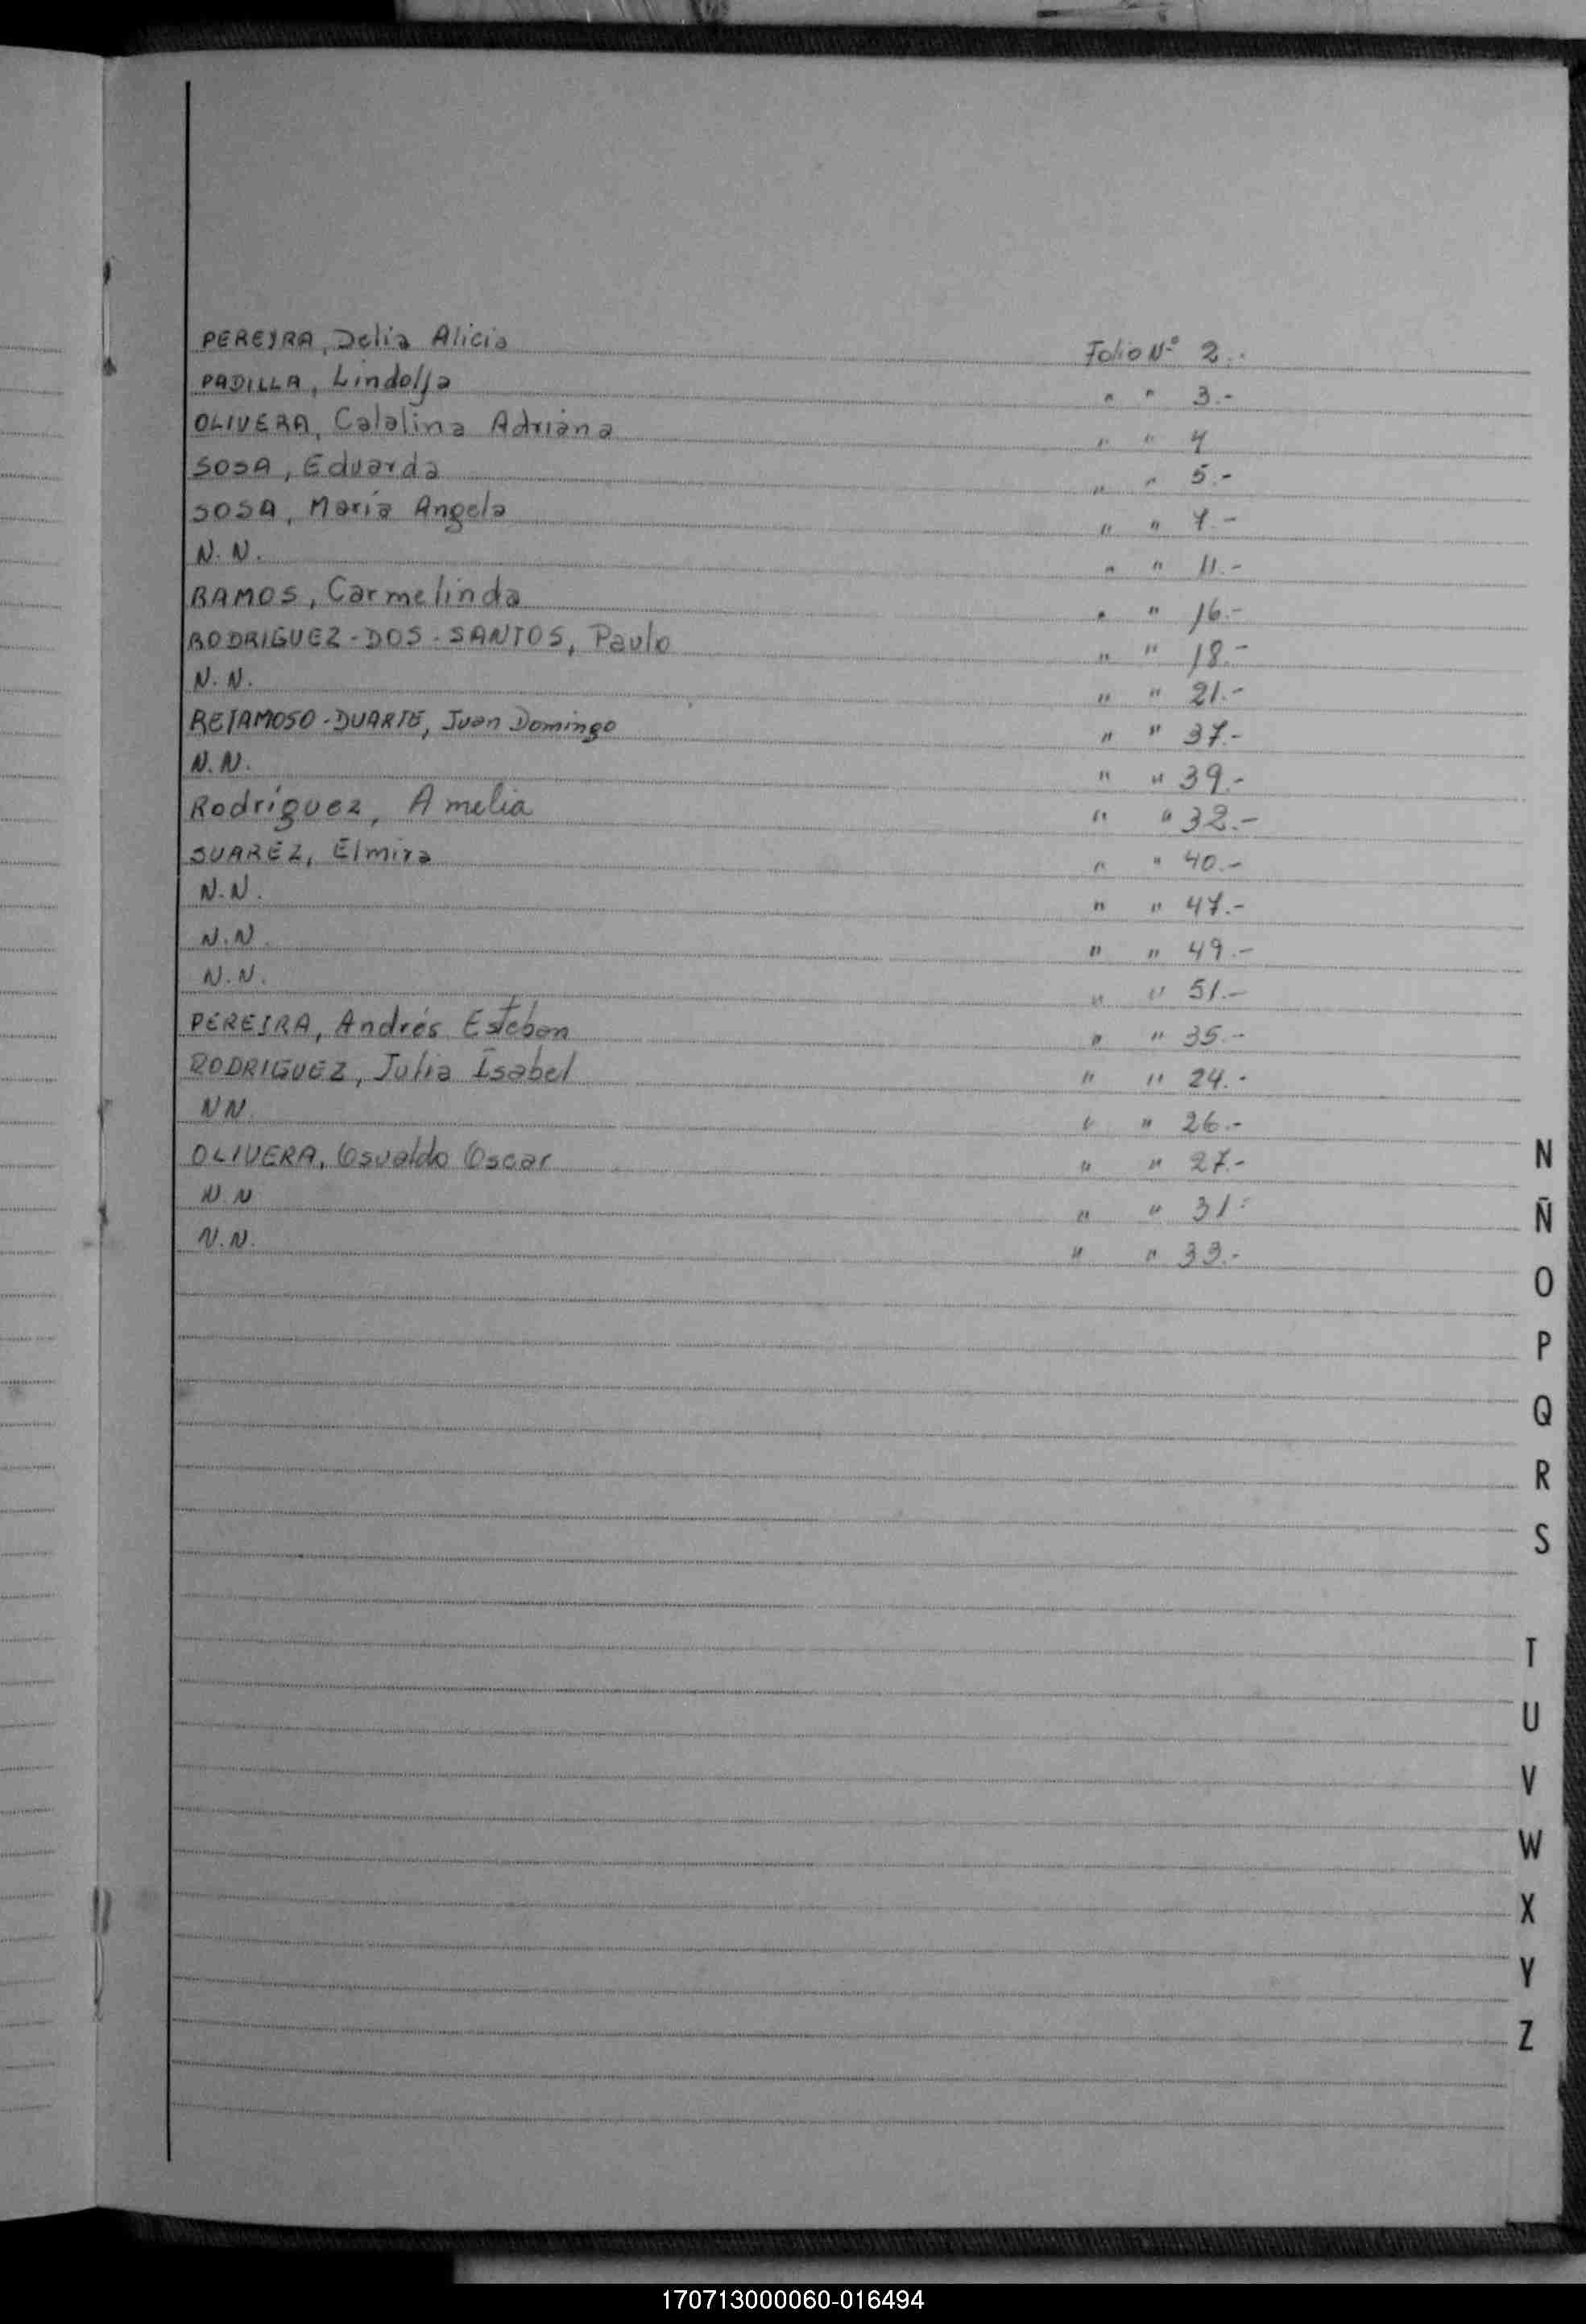 PEREYRA, Delia Alicia Folio Nº 2.-
PADILLA, Lindolfa " " 3.-
OLIVERA, Catalina Adriana " " 4
SOSA, Eduarda " " 5.-
SOSA, María Angela " " 7.-
N.N. " " 11.-
RAMOS, Carmelinda " " 16.-
RODRIGUEZ-DOS-SANTOS, Paulo " " 18.-
N.N. " " 21.-
RETAMOSO-DUARTE, Juan Domingo " " 37.-
N.N. " " 39.-
Rodríguez, Amelia " " 32.-
SUAREZ, Elmira " " 40.-
N.N. " " 47.-
N.N. " " 49.-
N.N. " " 51.-
PEREIRA, Andrés Esteban " " 35.-
RODRIGUEZ, Julia Isabel " " 24.-
NN. " " 26.-
OLIVERA, Osvaldo Oscar " " 27.-
N.N " " 31.-
N.N. " " 33.-
N
Ñ
O
P
Q
R
S
T
U
V
W
X
Y
Z
170713000060-016494